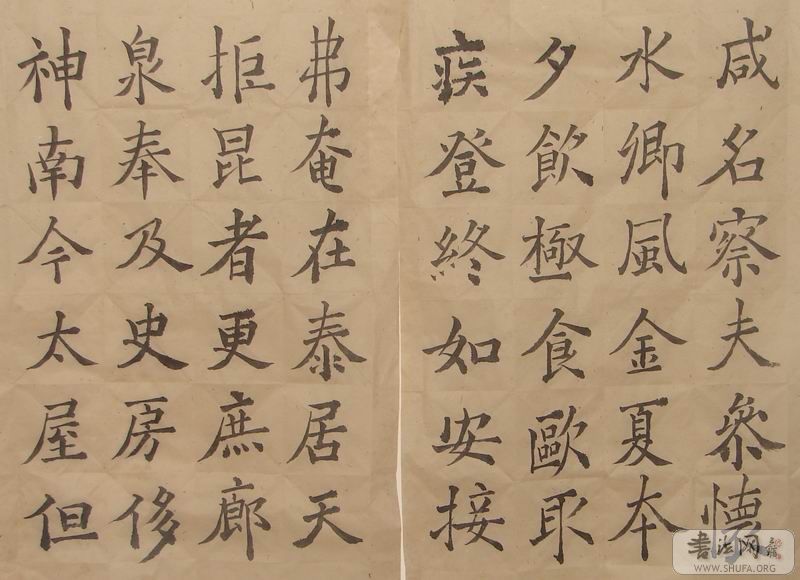 咸名察夫参懐
水卿風金夏本
夕飲極食歐取
疾登終如安接
弗奄在泰居天
拒昆者更庶廊
泉奉及史房侈
神南今太屋但
書法网
WWW.SHUFA.ORG